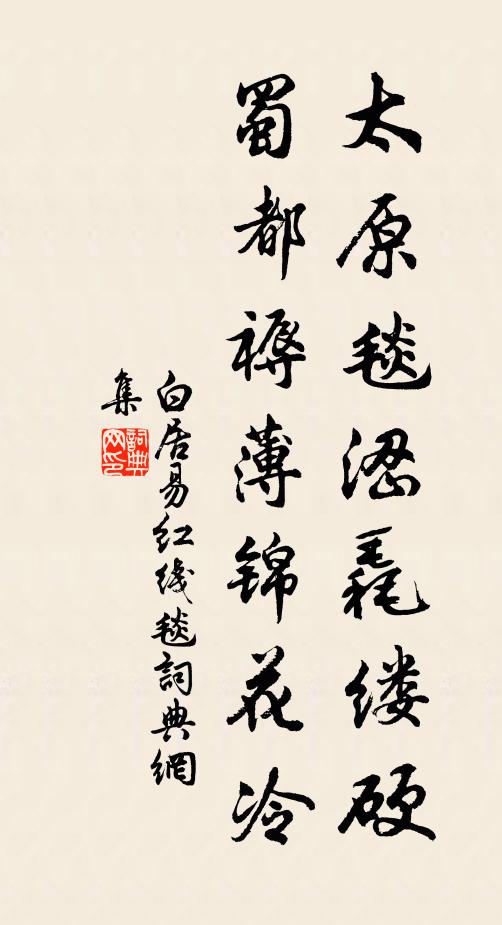 太原毯澀毳缕硬
蜀都褥薄锦花冷
白居易红线毯詞典網
集
詞典网印